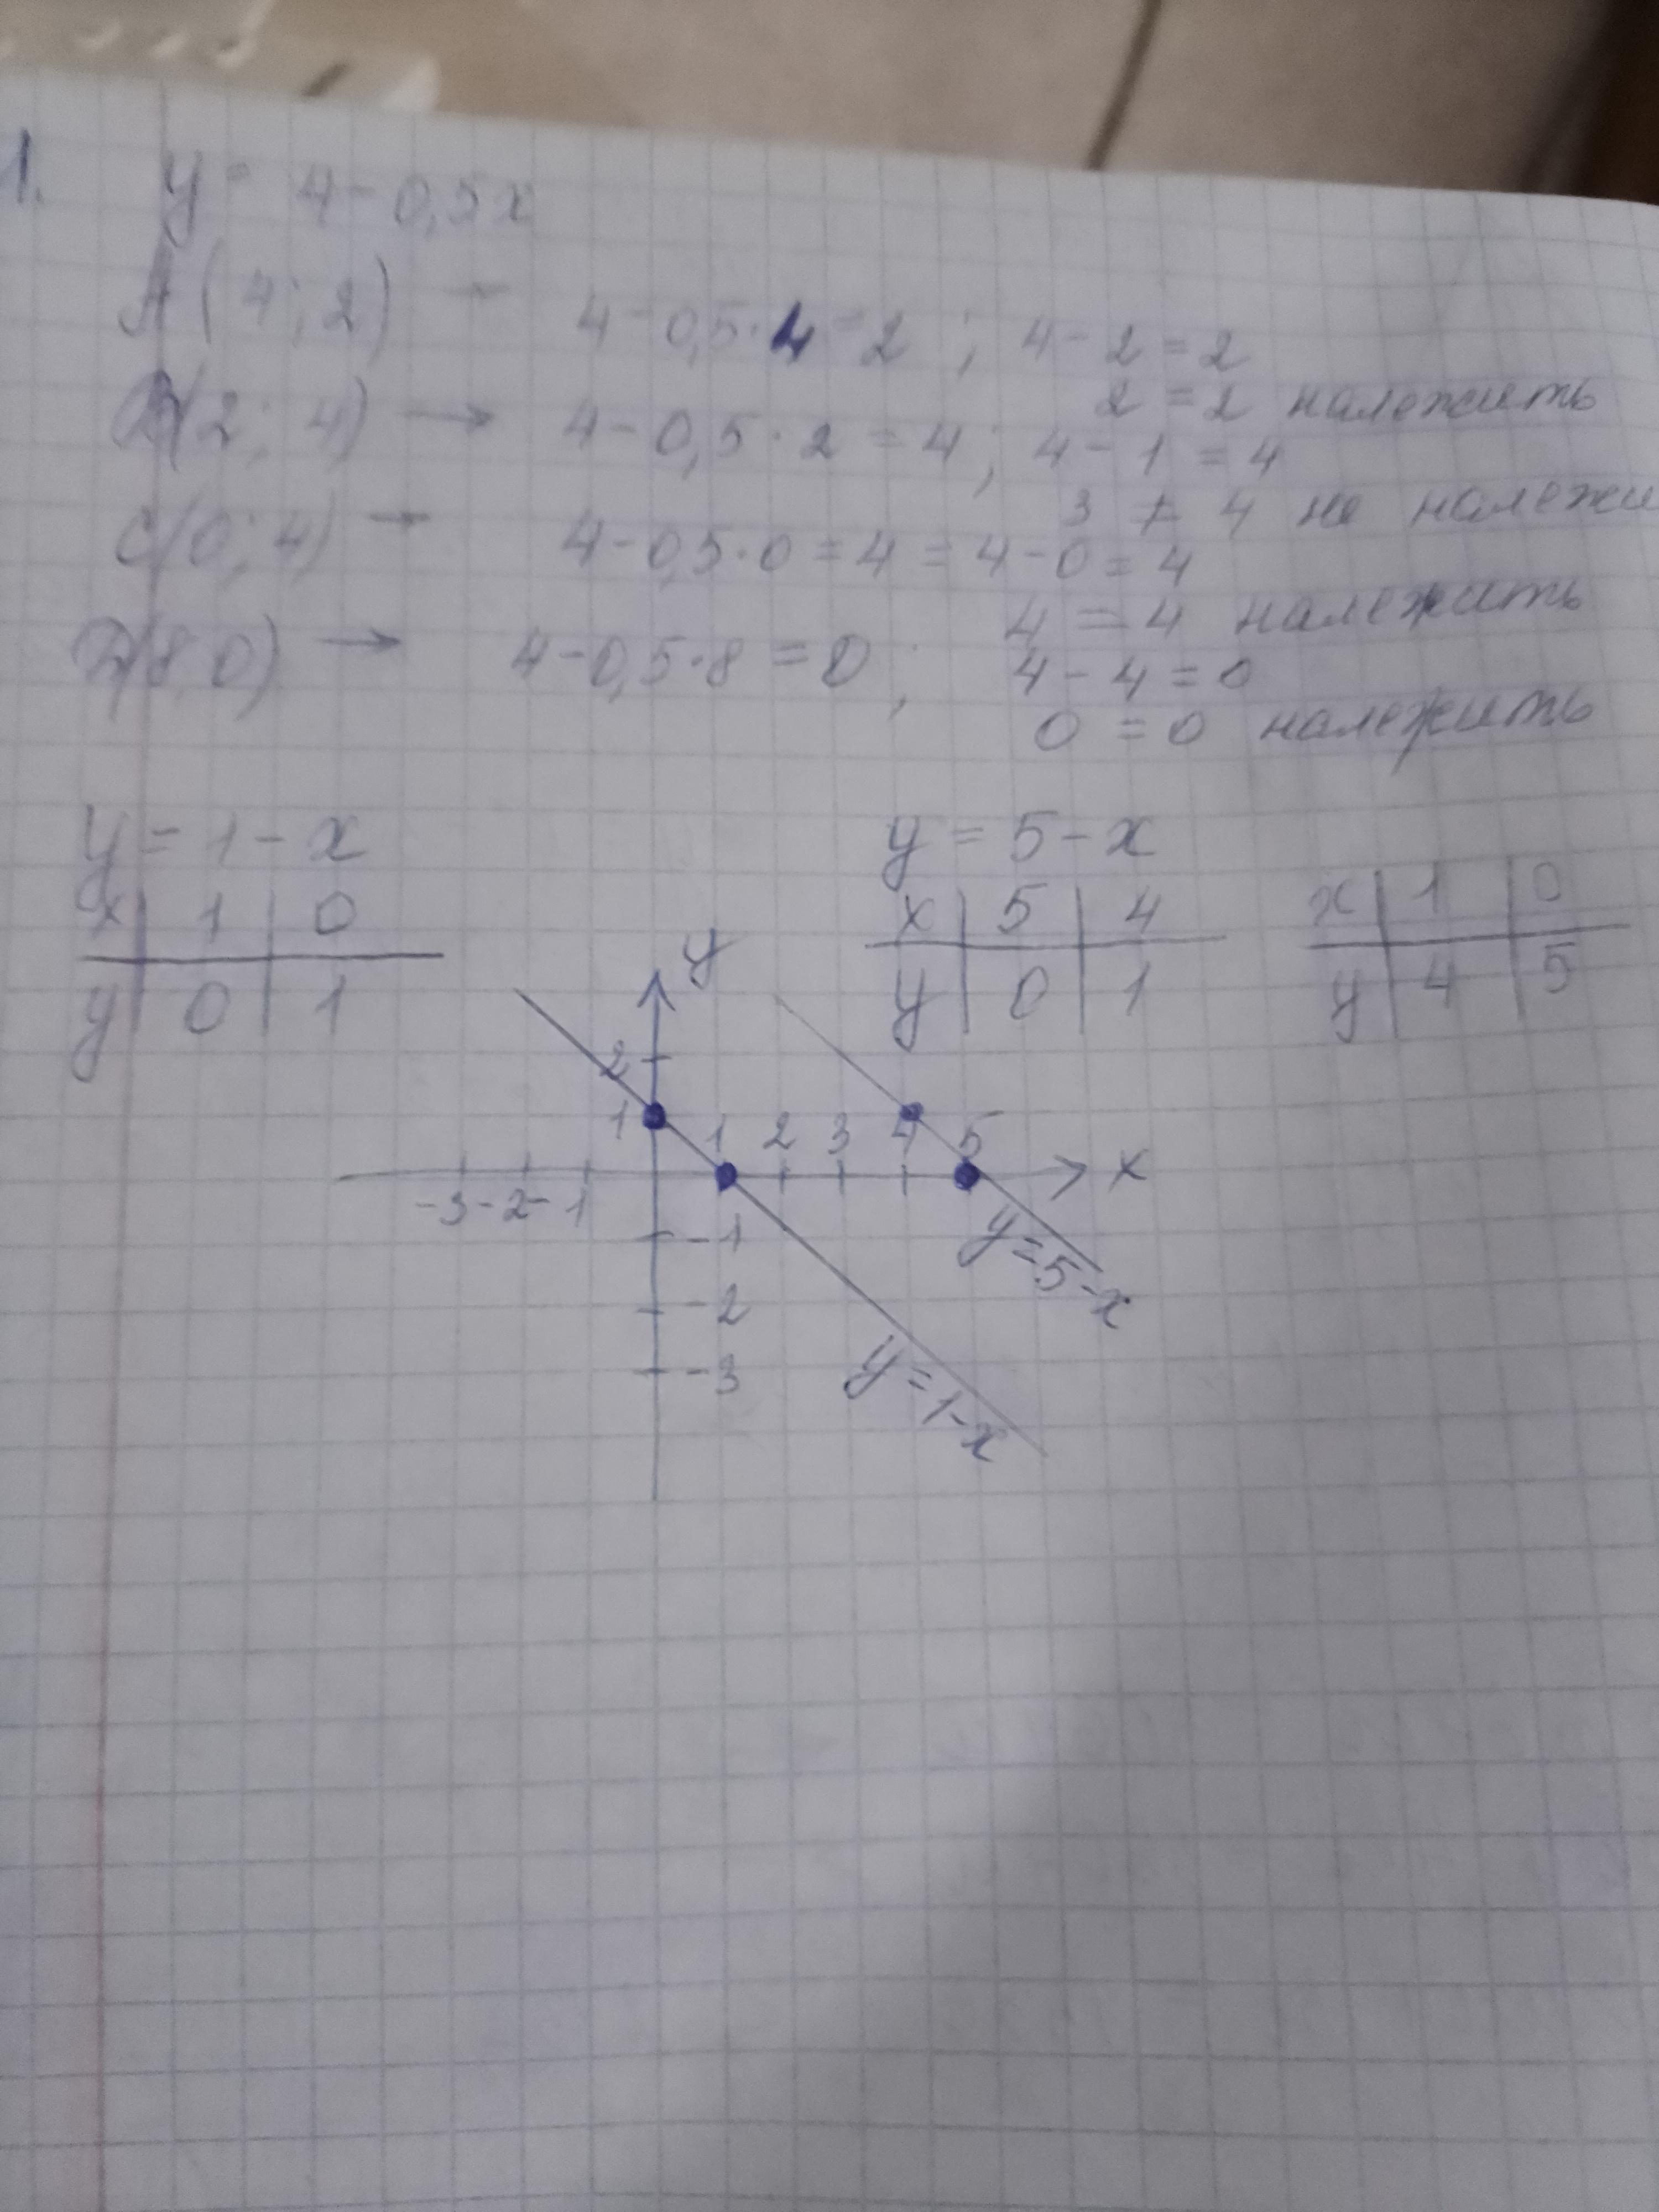 1. y = 4 - 0,5x
A(4; 2) → 4 - 0,5·4 = 2 ; 4 - 2 = 2
2 = 2 належить
B(2; 4) → 4 - 0,5·2 = 4 ; 4 - 1 = 4
3 ≠ 4 не належи
C(0; 4) → 4 - 0,5·0 = 4 = 4 - 0 = 4
4 = 4 належить
D(8 0) → 4 - 0,5·8 = 0 ; 4 - 4 = 0
0 = 0 належить
y = 1 - x
x | 1 | 0
y | 0 | 1
y = 5 - x
x | 5 | 4
y | 0 | 1
x | 1 | 0
y | 4 | 5
y
2
1
1 2 3 4 5
x
-3 -2 -1
-1
-2
-3
y = 5 - x
y = 1 - x